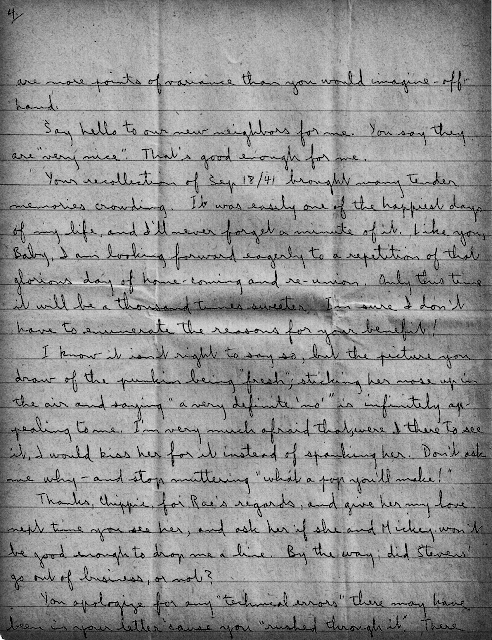 4/
are more points of variance than you would imagine - off-
hand.
Say hello to our new neighbors for me. You say they
are "very nice". That's good enough for me.
Your recollection of Sep 18/41 brought many tender
memories crowding. It was easily one of the happiest days
of my life, and I'll never forget a minute of it. Like you,
Baby, I am looking forward eagerly to a repetition of that
glorious day of home-coming and re-union. Only this time
it will be a thousand times sweeter. I'm sure I don't
have to enumerate the reasons for your benefit!
I know it isn't right to say so, but the picture you
draw of the punkin being "fresh", sticking her nose up in
the air and saying "a very definite 'no'" is infinitely ap-
pealing to me. I'm very much afraid that, were I there to see
it, I would kiss her for it instead of spanking her. Don't ask
me why - and stop muttering "what a pop you'll make!"
Thanks, Chippie, for Rae's regards, and give her my love
next time you see her, and ask her if she and Mickey won't
be good enough to drop me a line. By the way, did Stevens'
go out of business, or not?
You apologize for any "technical errors" there may have
been in your letter cause you "rushed through it". There